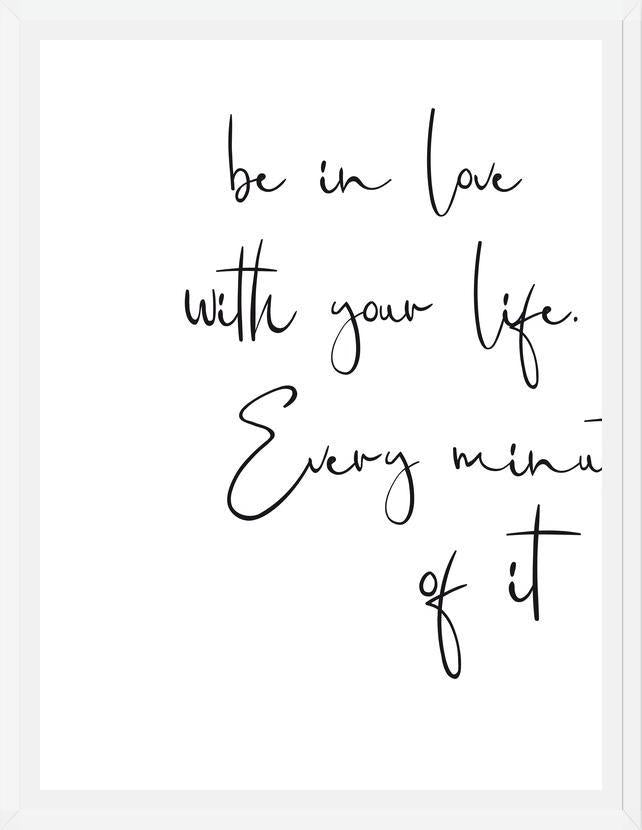 be in love
with your life.
Every minu
of it